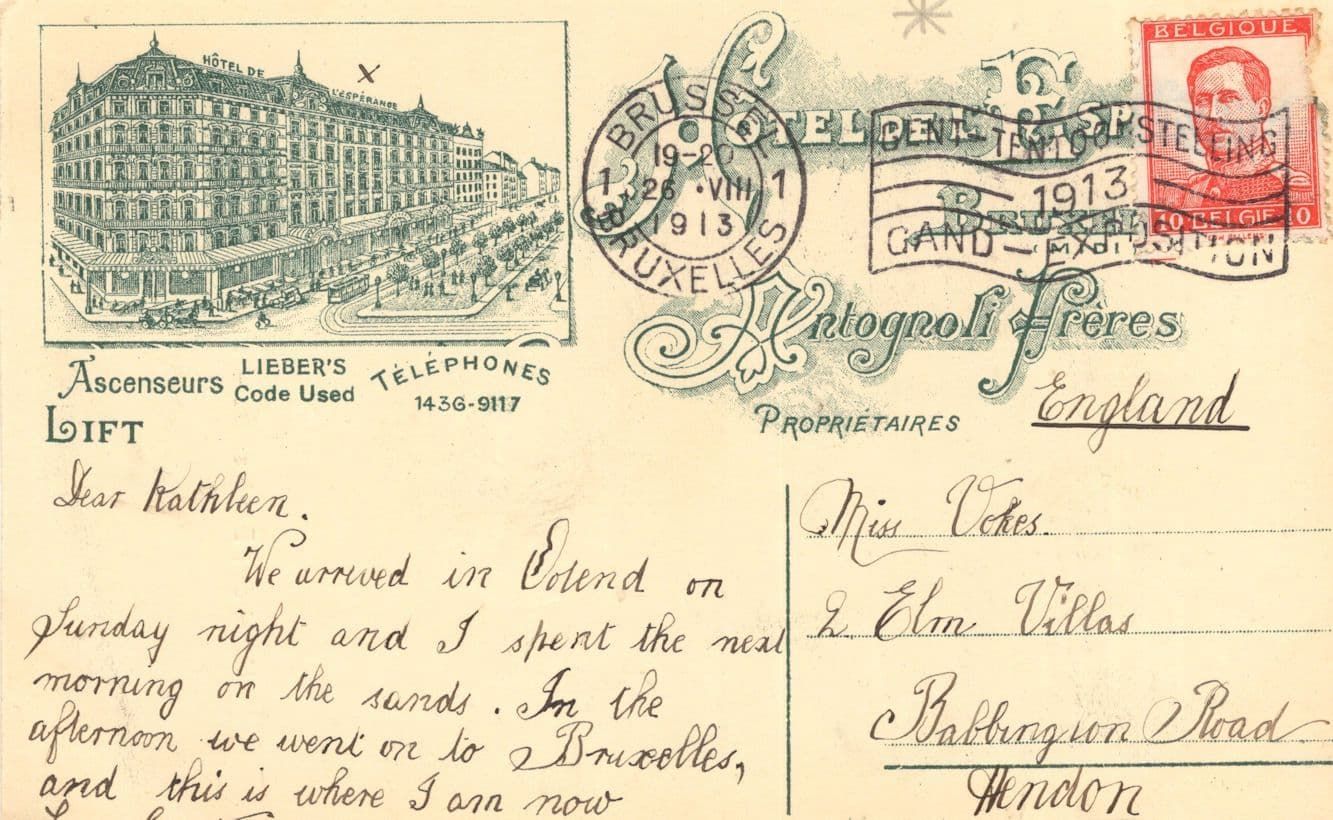 HÔTEL DE L'ESPÉRANCE
X
Ascenseurs
LIFT
LIEBER'S
Code Used
TÉLÉPHONES
1436-9117
BRUSSEL
19-20
1 26 · VIII 1
1913
BRUXELLES
BELGIQUE
10 BELGIE 10
GENT-TENTOONSTELLING
1913
GAND-EXPOSITION
Antognoli Frères
PROPRIÉTAIRES
England
Dear Kathleen.
We arrived in Ostend on
Sunday night and I spent the next
morning on the sands. In the
afternoon we went on to Bruxelles,
and this is where I am now
Miss Vokes.
2 Elm Villas
Babbington Road
Hendon